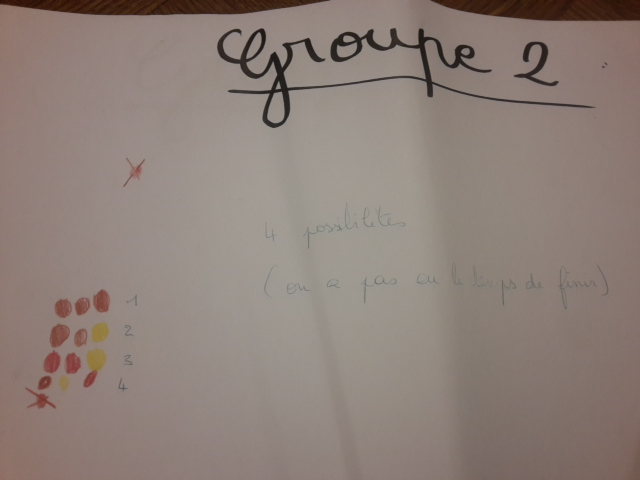 Groupe 2
4 possibilités
(on a pas eu le temps de finir)
1
2
3
4